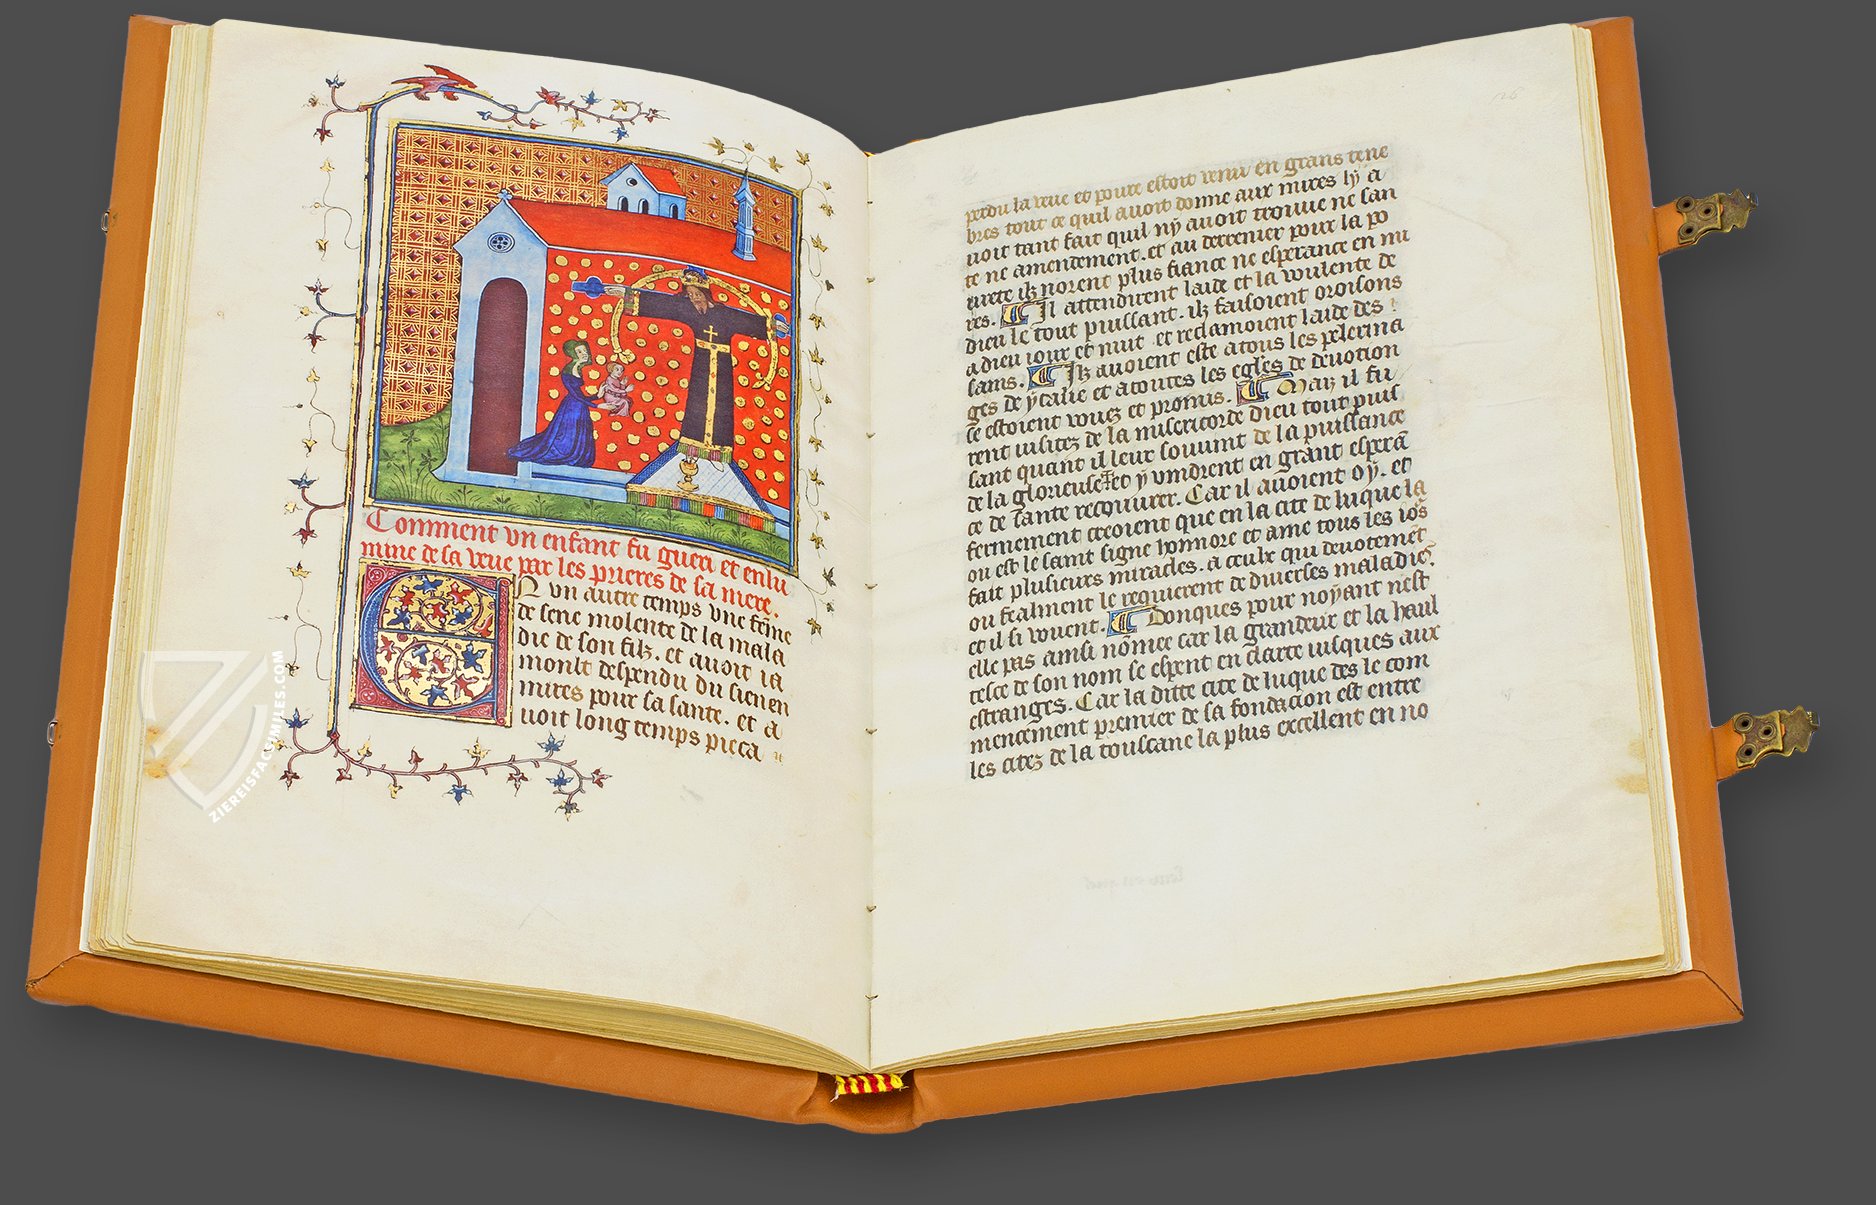 Comment vn enfant fu gueri et enlu
mine de sa veue par les prieres de sa mere.
En vn autre temps vne fēme
de sene molente de la mala
die de son filz. et auoit ia
moult despendu du sien en
mires pour sa sante. et a
uoit long temps pieca
perdu la veue et poure estoit venu en grans tene
bres tout ce quil auoit donne aux mires ly a
uoit tant fait quil ny auoit trouue ne san
te ne amendement. et au derrenier pour la po
urete ilz norent plus fiance ne esperance en mi
res. Il attendirent laide et la voulente de
dieu le tout puissant. ilz faisoient oroisons
a dieu iour et nuit et reclamoient laide des
sains. Ilz auoient este a tous les pelerina
ges de ytalie et a toutes les egl̄es de deuotion
se estoient vouez et promis. Maiz il fu
rent uisitez de la misericorde dieu tout puis
sant quant il leur souuint de la puissance
de la glorieuse et y vindrent en grant esperā
ce de sante recouurer. Car il auoient oy. et
fermement creoient que en la cite de luque la
ou est le saint signe honnore et ame tous les io's
fait plusieurs miracles. a ceulx qui deuotemēt
ou fealment le requierent de diuerses maladies.
et il si vouent. Donques pour noyant nest
elle pas ainsi nōmee car la grandeur et la haul
tesce de son nom se espent en clarte iusques aux
estranges. Car la ditte cite de luque des le com
mencement premier de sa fondacion est entre
les citez de la touscane la plus excellent en no
26
ZIEREISFACSIMILES.COM